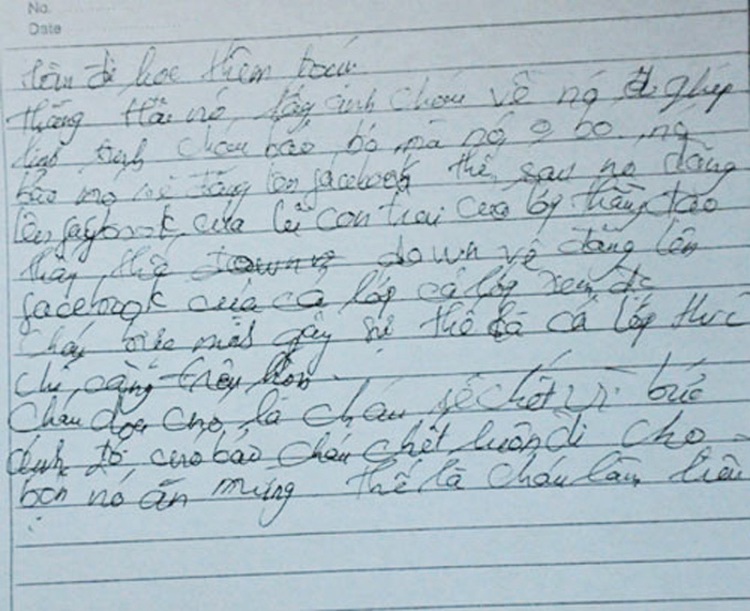 No.
Date
hôm đi học thêm
thằng nó lấy ảnh cháu về nó ghép
cháu bảo bỏ mà nó o bỏ nó
bảo đăng lên facebook thế sau nó đăng
lên facbook của lũ con trai của lớp thằng tao
thấy thế down về đăng lên
facebook của cả lớp cả lớp xem đc
cháy gây sự thế là cả lớp thức
chí càng trêu hơn
Cháu dọa cho là cháu sẽ chết vì bức
ảnh đó cứ bảo cháu chết luôn đi cho
bọn nó ăn mừng thế là cháu làm liều